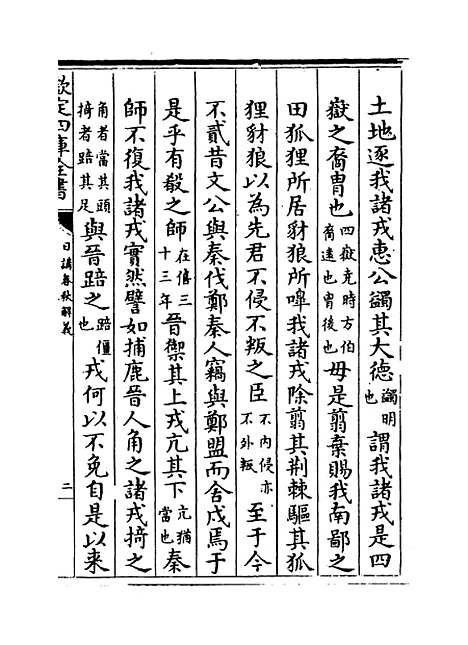 土地逐我諸戎惠公蠲其大德蠲明也謂我諸戎是四
嶽之裔胄也四嶽堯時方伯裔遠也胄後也毋是翦棄賜我南鄙之
田狐狸所居豺狼所嘷我諸戎除翦其荆棘驅其狐
狸豺狼以為先君不侵不叛之臣不内侵亦不外叛至于今
不貳昔文公與秦伐鄭秦人竊與鄭盟而舍戍焉于
是乎有殽之師在僖三十三年晉禦其上戎亢其下亢猶當也秦
師不復我諸戎實然譬如捕鹿晉人角之諸戎掎之
角者當其頭掎者踣其足與晉踣之踣僵也戎何以不免自是以来
欽定四庫全書
日講春秋解義
二